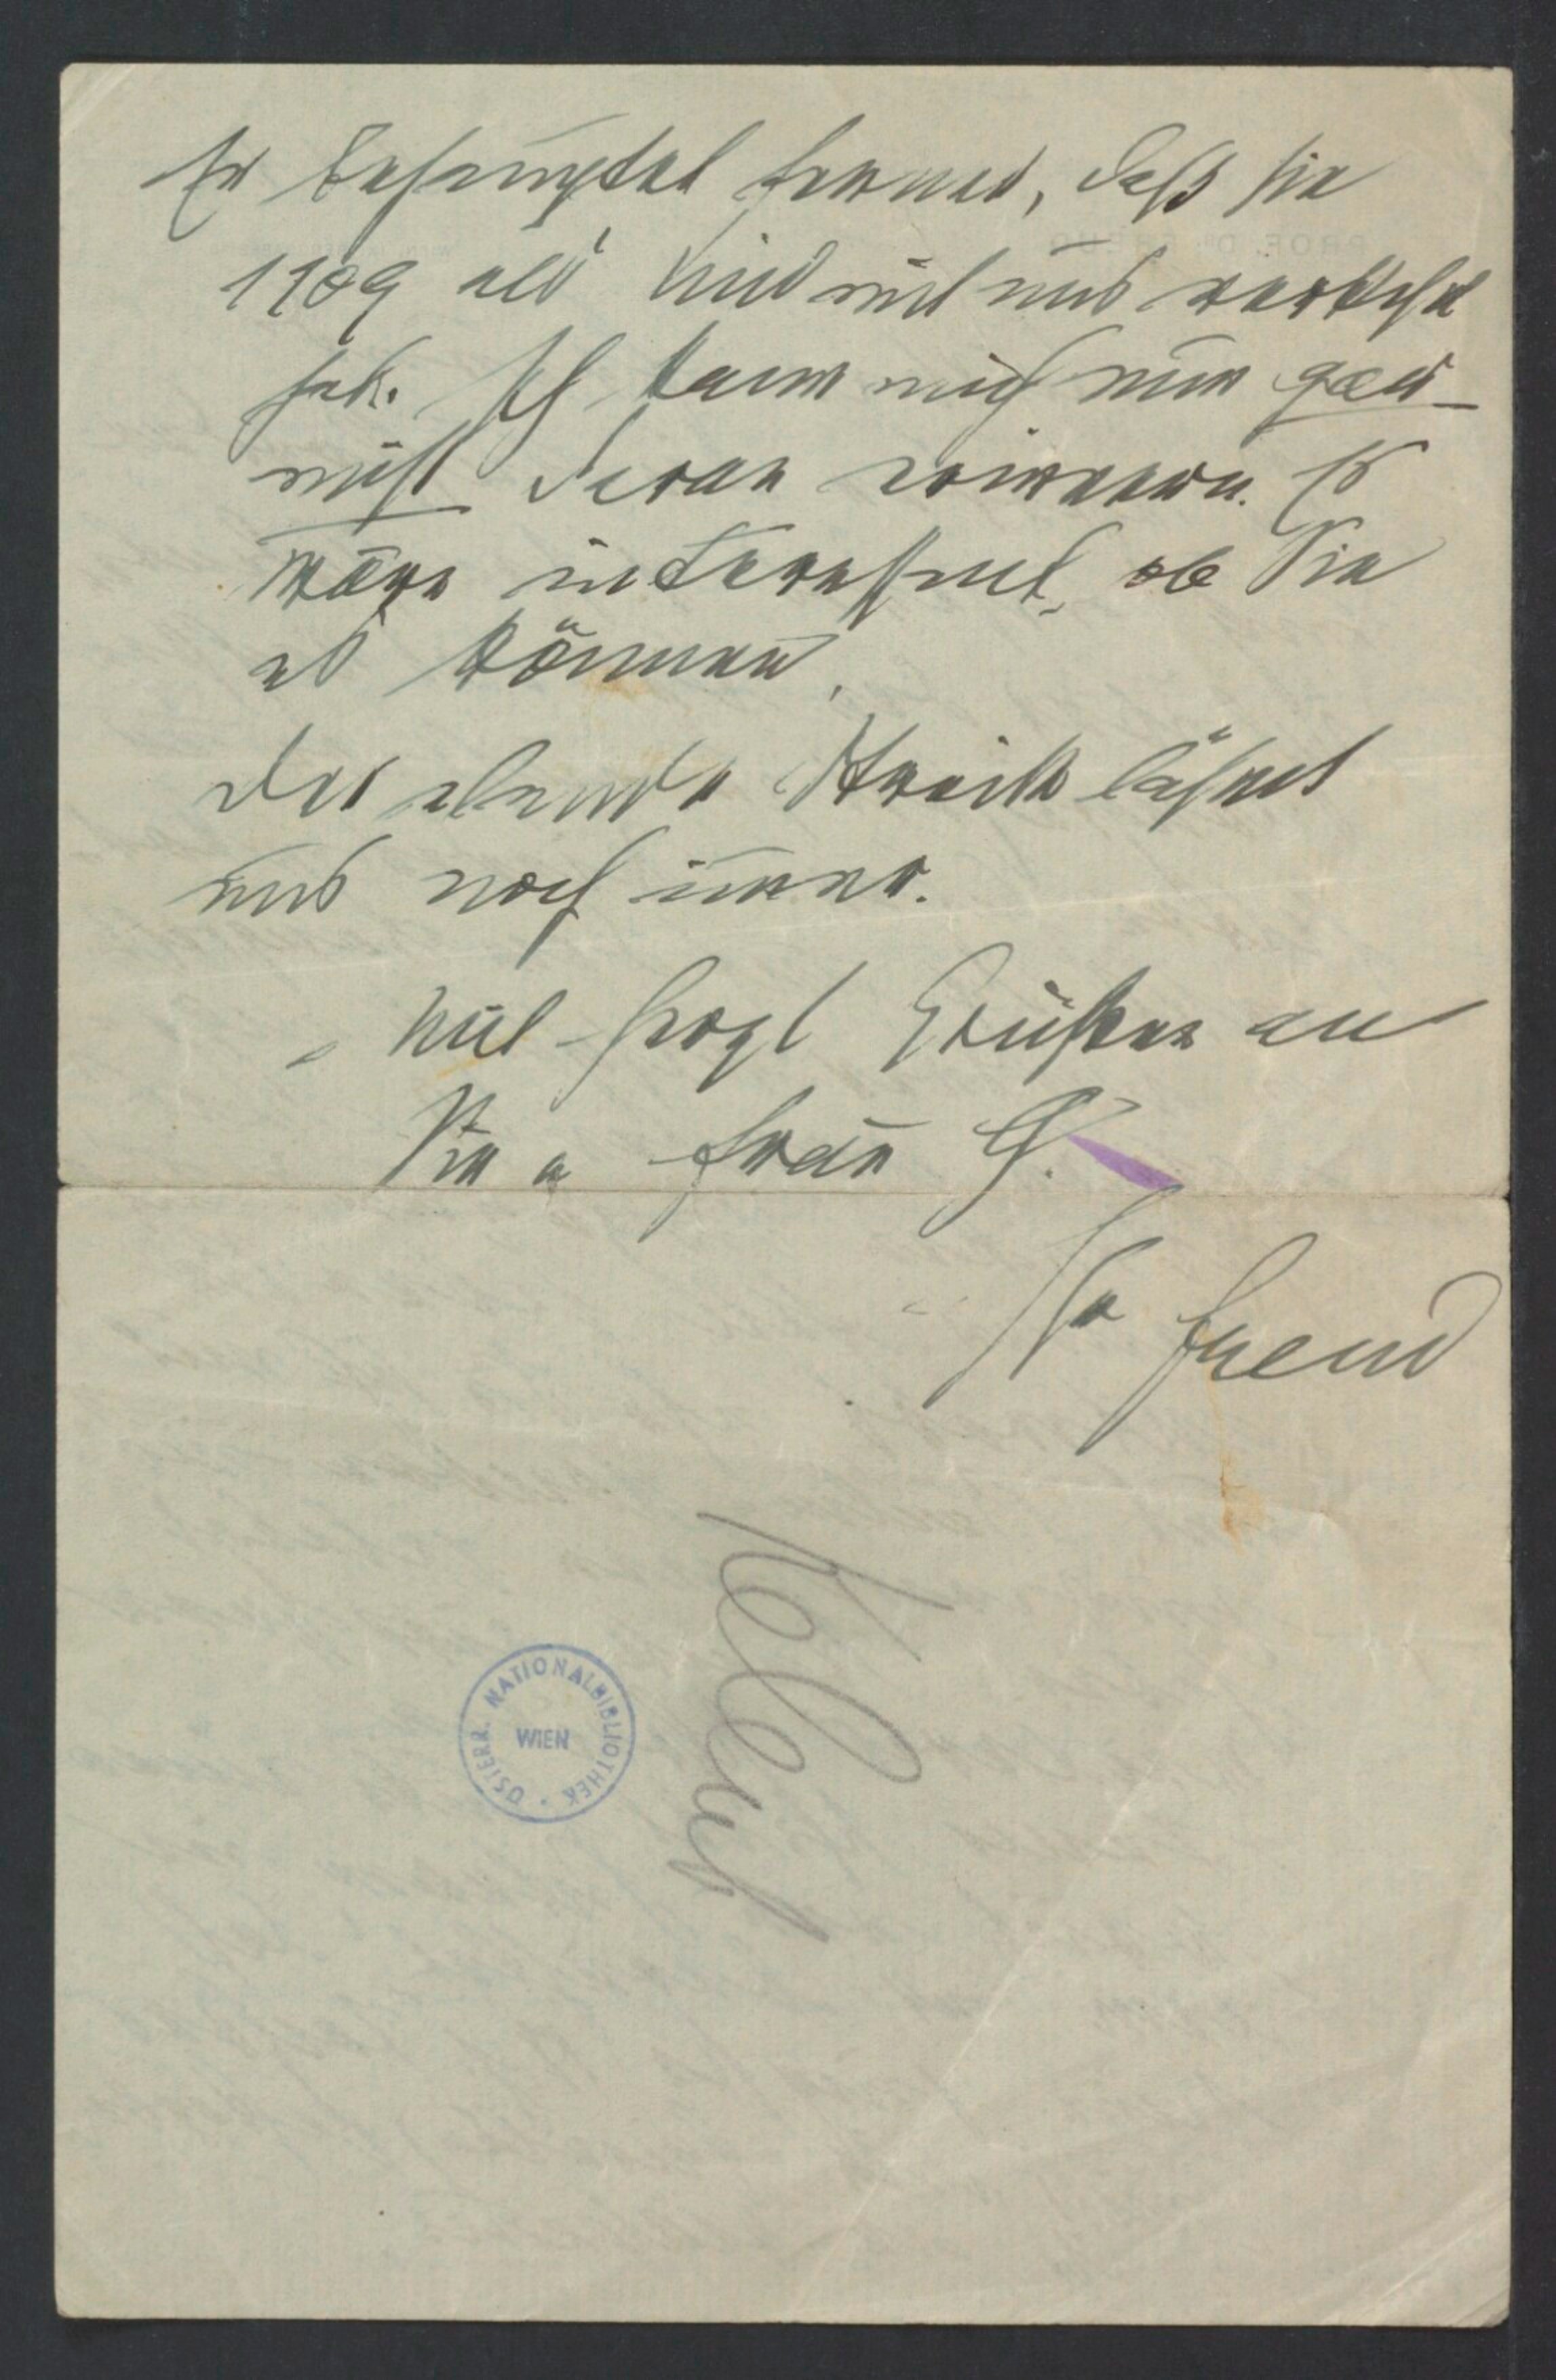 Er behauptet ferner, daß sie
1909 als Kind mit uns verkehrt
hat. Ich kann mich nun gar
nicht daran erinnern. Es
wäre interessant, ob Sie
es können.
Der elende Streik lähmt
uns noch immer.
Mit herzl Grüßen an
Sie u Frau G.
Ihr Freud
ÖSTERR. NATIONALBIBLIOTHEK
WIEN